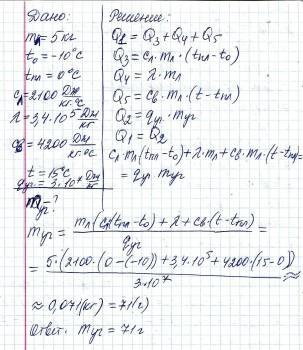 Дано:
mл = 5 кг
t₀ = -10°С
tпл = 0°С
cл = 2100 Дж/кг·°С
λ = 3,4·10⁵ Дж/кг
cв = 4200 Дж/кг·°С
t = 15°С
qуг. = 3·10⁷ Дж/кг
mуг - ?
Решение:
Q1 = Q3 + Q4 + Q5
Q3 = cл·mл·(tпл - t₀)
Q4 = λ·mл
Q5 = cв·mл·(t - tпл)
Q2 = qуг·mуг
Q1 = Q2
cл·mл(tпл - t₀) + λ·mл + cв·mл·(t - tпл) =
= qуг·mуг
mуг = mл(cл(tпл - t₀) + λ + cв(t - tпл)) / qуг =
= 5·(2100·(0-(-10)) + 3,4·10⁵ + 4200·(15-0)) / 3·10⁷ ≈
≈ 0,071(кг) = 71(г)
Ответ: mуг = 71г